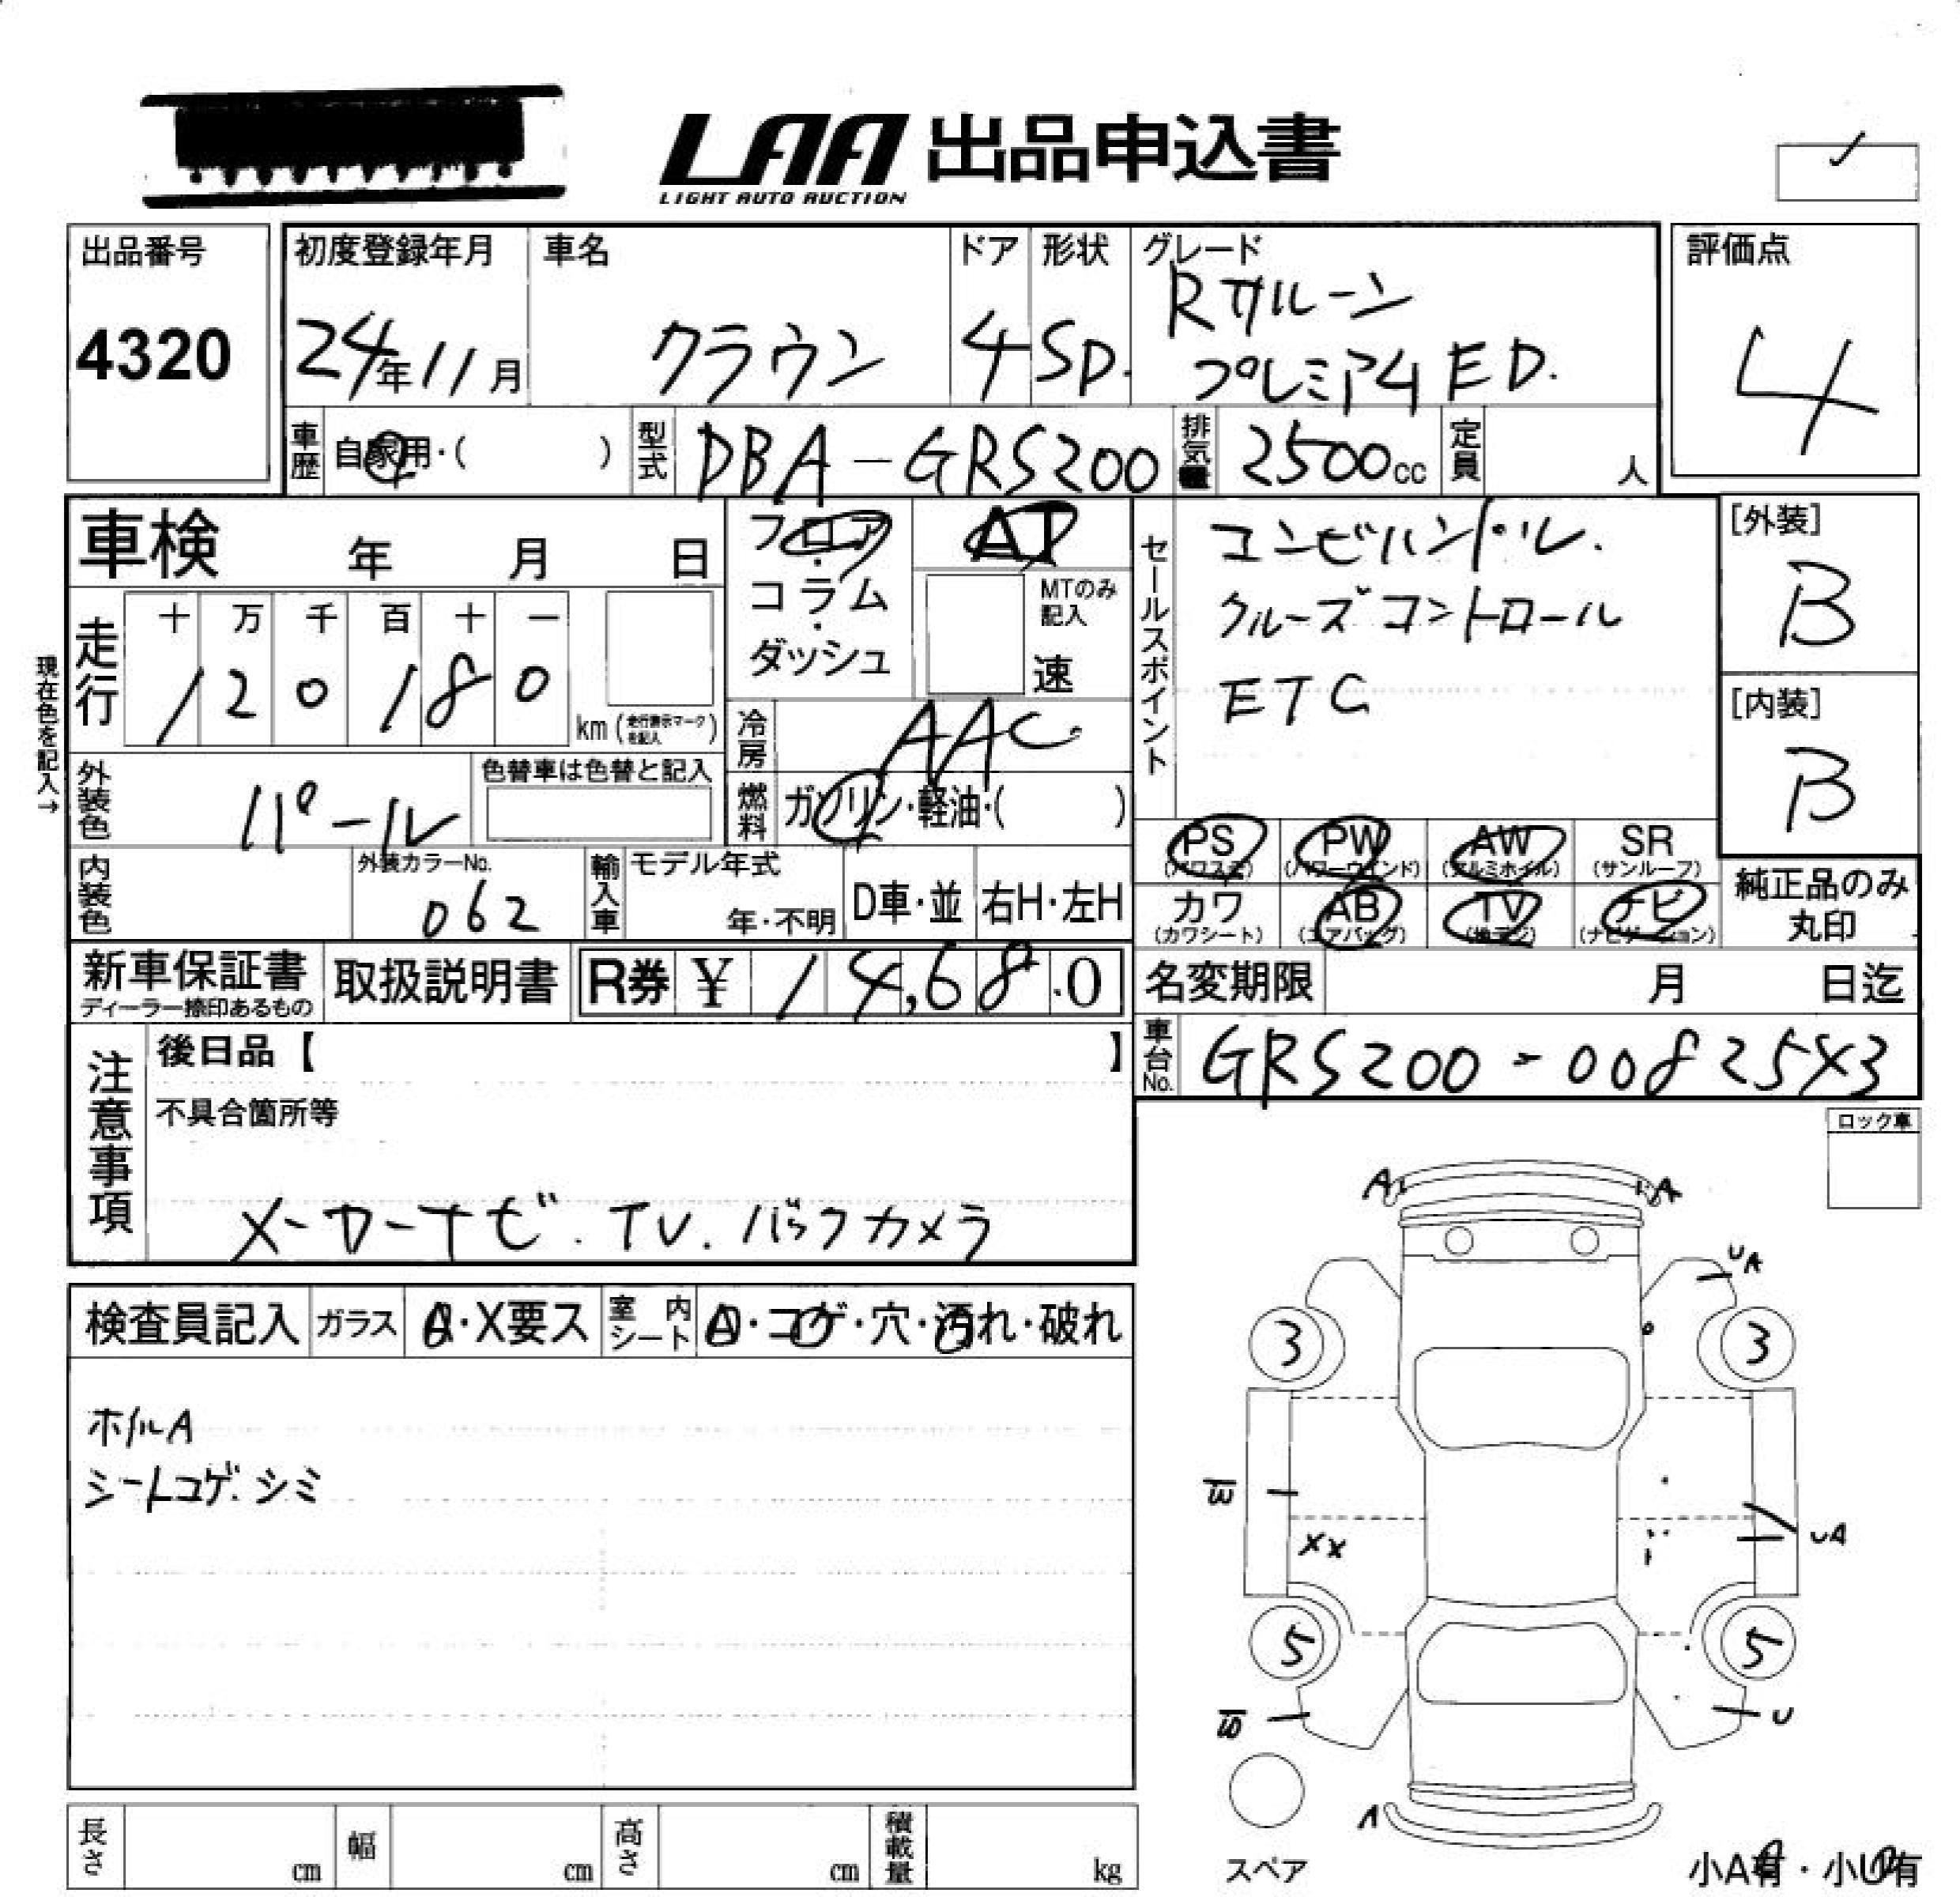 LAA 出品申込書
LIGHT AUTO AUCTION
出品番号
4320
初度登録年月
24年11月
車名
クラウン
ドア
4
形状
SD.
グレード
Rサルーン
プレミアム ED.
評価点
4
車歴 自家用・( )
型式 DBA-GRS200
排気量 2500cc
定員 人
車検 年 月 日
フロア・コラム・ダッシュ
AT
MTのみ記入
速
セールスポイント
コンビハンドル.
クルーズコントロール
ETC
[外装]
B
[内装]
B
現在色を記入→
走行
十 万 千 百 十 一
1 2 0 1 8 0
km (走行表示マークを記入)
冷房 AAC
燃料 ガソリン・軽油・( )
外装色 パール
色替車は色替と記入
内装色
外装カラーNo.
062
輸入車 モデル年式
年・不明
D車・並
右H・左H
PS (パワステ)
PW (パワーウインド)
AW (アルミホイル)
SR (サンルーフ)
カワ (カワシート)
AB (エアバッグ)
TV (地デジ)
ナビ (ナビゲーション)
純正品のみ
丸印
新車保証書
ディーラー捺印あるもの
取扱説明書
R券 ¥ 14,680
名変期限 月 日迄
車台No. GRS200-0082543
注意事項
後日品【 】
不具合箇所等
メーカーナビ. TV. バックカメラ
ロック車
検査員記入
ガラス A・X要ス
室内シート A・コゲ・穴・汚れ・破れ
ホイルA
シートコゲ. シミ
A A
UA
3 3
XX
UA
5 5
U
A
スペア
小A有・小U有
長さ cm
幅 cm
高さ cm
積載量 kg